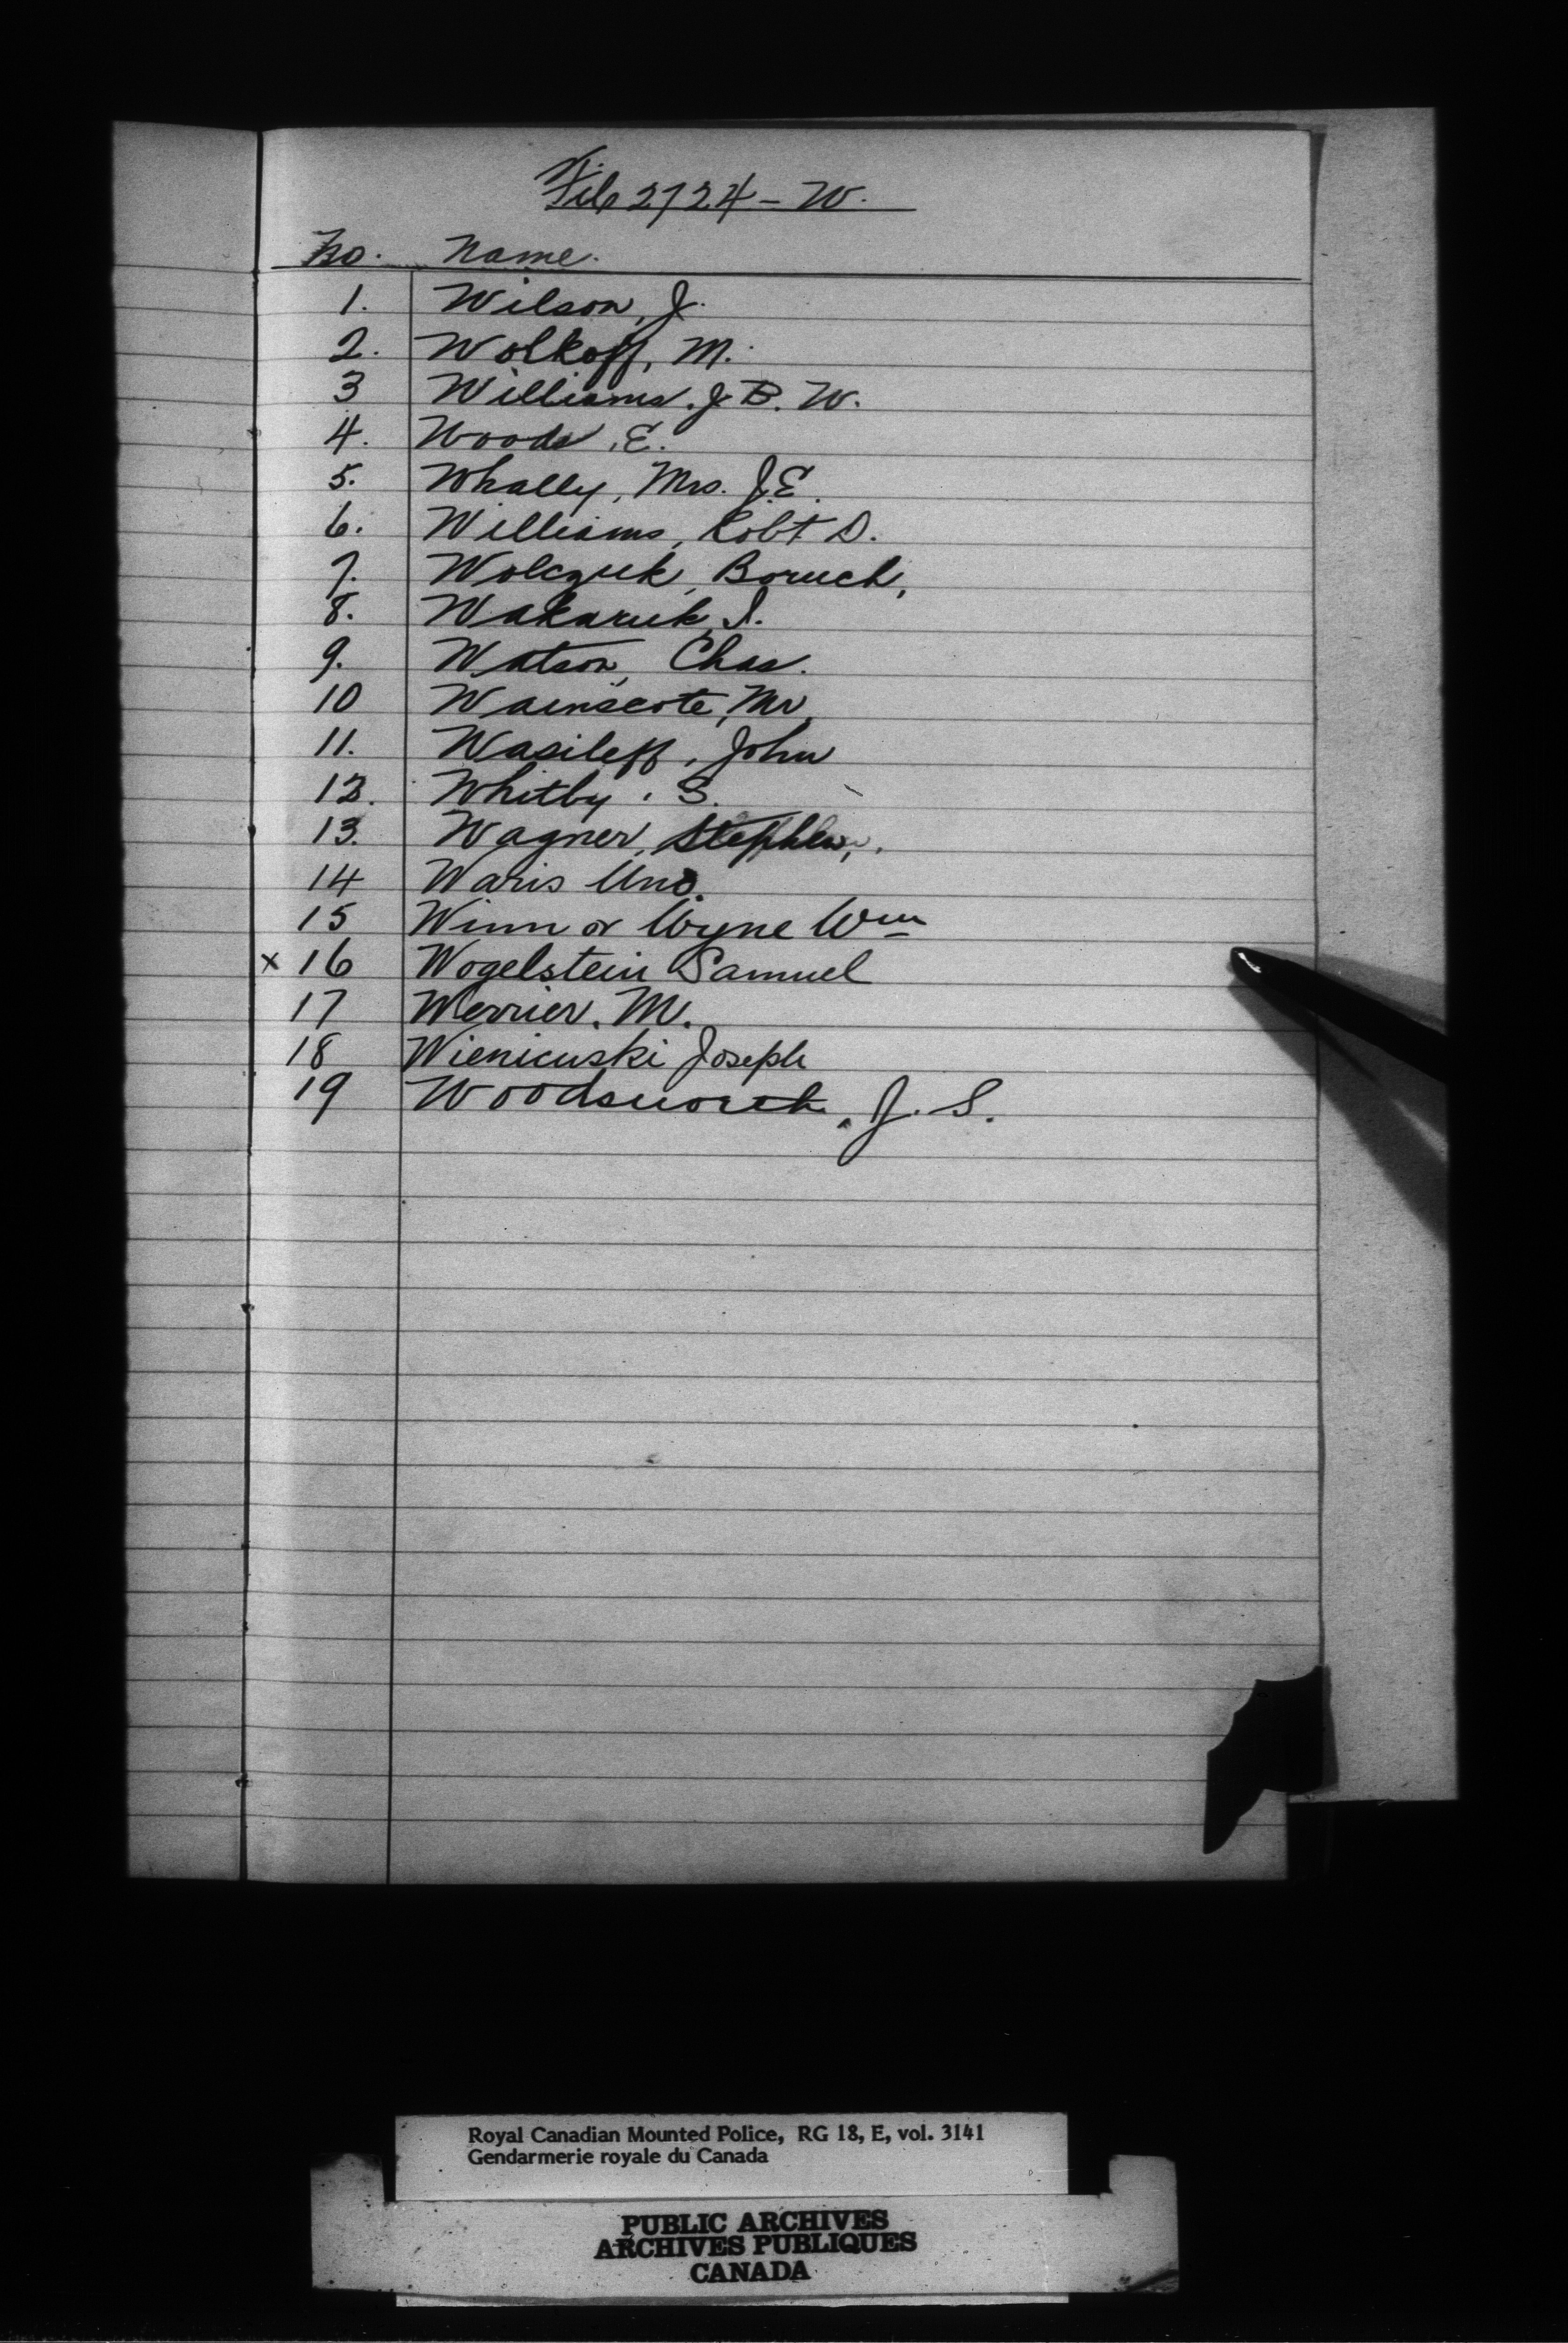 File 2724 - W.
No. Name.
1. Wilson, J.
2. Wolkoff, M.
3 Williams. J. B. W.
4. Woods, E.
5. Whally, Mrs. J.E.
6. Williams, Robt D.
7. Wolczuk, Boruch,
8. Wakaruk, I.
9. Watson, Chas.
10 Wainscote, Mr
11. Wasileff, John
12. Whitby, S.
13. Wagner, Stephen,
14 Waris Uno.
15 Winn or Wyne Wm
x 16 Wogelstein Samuel
17 Werrier. M.
18 Wienicuski Joseph
19 Woodsworth, J. S.
Royal Canadian Mounted Police, RG 18, E, vol. 3141
Gendarmerie royale du Canada
PUBLIC ARCHIVES
ARCHIVES PUBLIQUES
CANADA